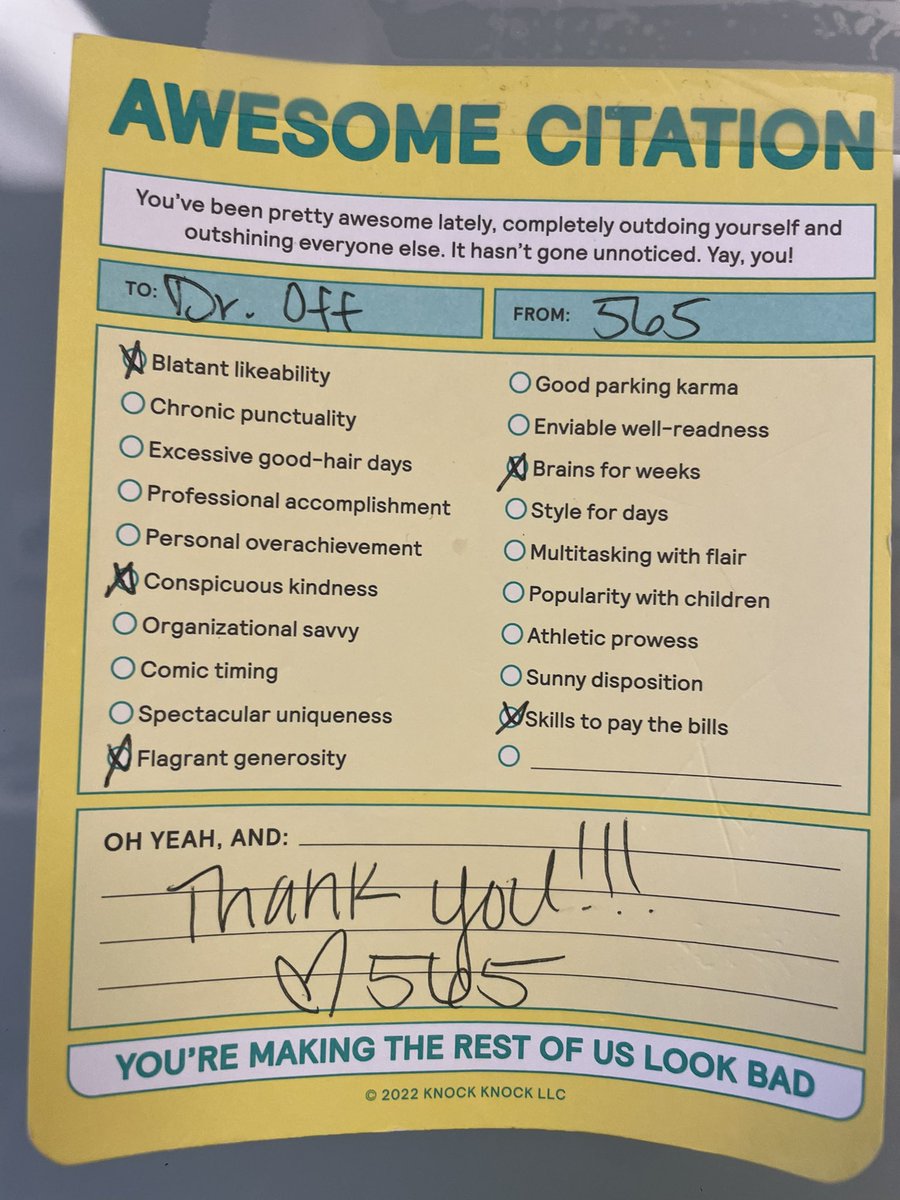 AWESOME CITATION
You've been pretty awesome lately, completely outdoing yourself and
outshining everyone else. It hasn't gone unnoticed. Yay, you!
TO: Dr. Off
FROM: 565
Blatant likeability
Chronic punctuality
Excessive good-hair days
Professional accomplishment
Personal overachievement
Conspicuous kindness
Organizational savvy
Comic timing
Spectacular uniqueness
Flagrant generosity
Good parking karma
Enviable well-readness
Brains for weeks
Style for days
Multitasking with flair
Popularity with children
Athletic prowess
Sunny disposition
Skills to pay the bills
OH YEAH, AND:
Thank you!!!
♡ 565
YOU'RE MAKING THE REST OF US LOOK BAD
© 2022 KNOCK KNOCK LLC